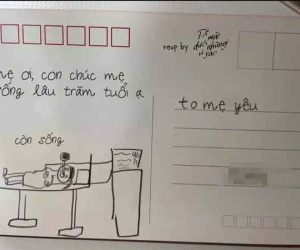 mẹ ơi, con chúc mẹ
sống lâu trăm tuổi ạ
còn sống
reup by
to mẹ yêu